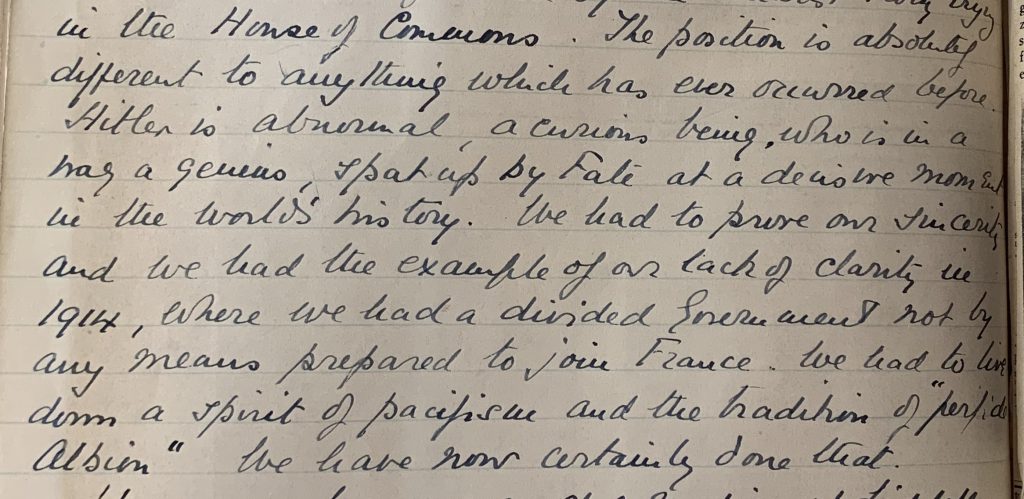 in the House of Commons. The position is absolutely
different to anything which has ever occurred before.
Hitler is abnormal, a curious being, who is in a
way a genius, spat up by Fate at a decisive moment
in the world's history. We had to prove our sincerity
and we had the example of our lack of clarity in
1914, where we had a divided Government not by
any means prepared to join France. We had to live
down a spirit of pacifism and the tradition of "perfide
Albion" We have now certainly done that.